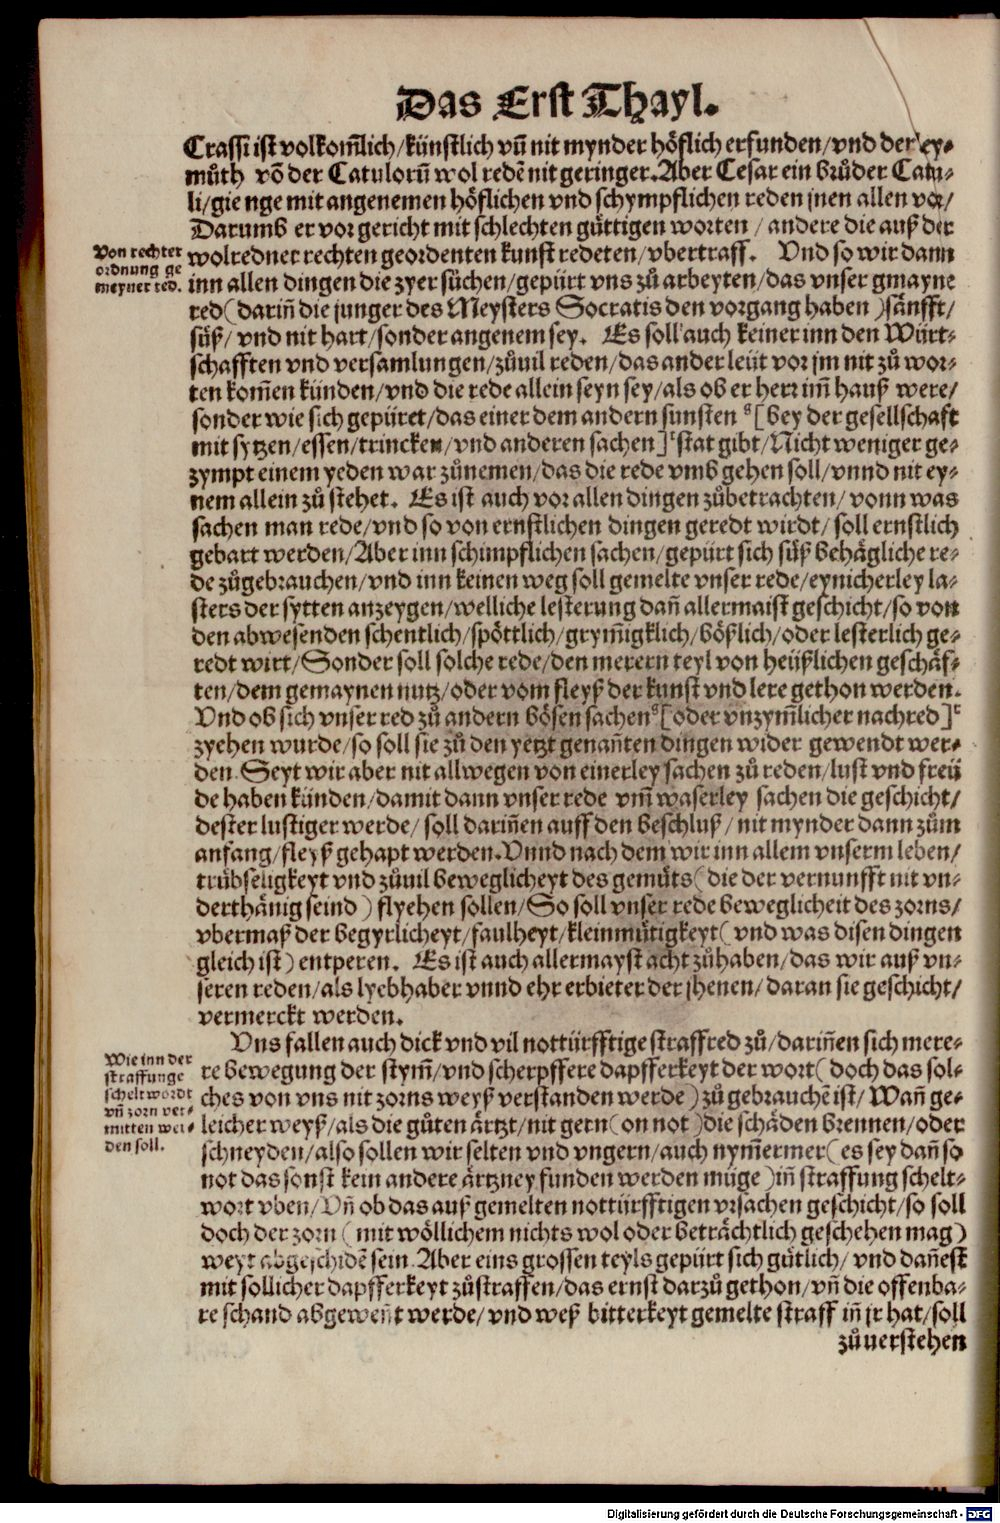 Das Erst Thayl.
Crassi ist volkom̃lich/künstlich vñ nit mynder höflich erfunden/vnd der ey⸗
můth võ der Catulorũ wol redẽ nit geringer. Aber Cesar ein brůder Catu⸗
li/gienge mit angenemen höflichen vnd schympflichen reden jnen allen vor/
Darumb er vor gericht mit schlechten gůttigen worten / andere die auß der
wolredner rechten geordenten kunst redeten/vbertraff. Vnd so wir dann
inn allen dingen die zyer sůchen/gepürt vns zů arbeyten/das vnser gmayne
red (dariñ die junger des Meysters Socratis den vorgang haben) sånfft/
süß/ vnd nit hart/sonder angenem sey. Es soll auch keiner inn den Würt⸗
schafften vnd versamlungen/zůuil reden/das ander leüt vor jm nit zů wor⸗
ten kom̃en künden/vnd die rede allein seyn sey/als ob er herr im̃ hauß were/
sonder wie sich gepüret/das einer dem andern sunsten ᵍ[bey der gesellschaft
mit sytzen/essen/trincken/vnd anderen sachen]ᶜ stat gibt/Nicht weniger ge⸗
zympt einem yeden war zůnemen/das die rede vmb gehen soll/vnnd nit ey⸗
nem allein zů stehet. Es ist auch vor allen dingen zůbetrachten/vonn was
sachen man rede/vnd so von ernstlichen dingen geredt wirdt/soll ernstlich
gebart werden/Aber inn schimpflichen sachen/gepürt sich süß behågliche re⸗
de zůgebrauchen/vnd inn keinen weg soll gemelte vnser rede/eynicherley la⸗
sters der sytten anzeygen/welliche lesterung dañ allermaist geschicht/so von
den abwesenden schentlich/spöttlich/grym̃igklich/bößlich/oder lesterlich ge⸗
redt wirt/Sonder soll solche rede/den merern teyl von heüßlichen geschåf⸗
ten/dem gemaynen nutz/oder vom fleyß der kunst vnd lere gethon werden.
Vnd ob sich vnser red zů andern bösen sachen ᵍ[oder vnzym̃licher nachred]ᶜ
zyehen wurde/so soll sie zů den yetzt genañten dingen wider gewendt wer⸗
den. Seyt wir aber nit allwegen von einerley sachen zů reden/lust vnd freü
de haben künden/damit dann vnser rede vm̃ waserley sachen die geschicht/
dester lustiger werde/ soll dariñen auff den beschluß/nit mynder dann zům
anfang/fleyß gehapt werden. Vnnd nach dem wir inn allem vnserm leben/
trübseligkeyt vnd zůuil beweglicheyt des gemůts (die der vernunfft nit vn⸗
derthånig seind) flyehen sollen/So soll vnser rede beweglicheit des zorns/
vbermaß der begyrlicheyt/faulheyt/kleinmůtigkeyt (vnd was disen dingen
gleich ist) entperen. Es ist auch allermayst acht zůhaben/das wir auß vn⸗
seren reden/als lyebhaber vnnd ehr erbieter der jhenen/daran sie geschicht/
vermerckt werden.
Von rechter
ordnung ge
meyner red.
Vns fallen auch dick vnd vil nottürfftige straffred zů/dariñen sich mere⸗
re bewegung der stym̃/vnd scherpffere dapfferkeyt der wort (doch das sol⸗
ches von vns nit zorns weyß verstanden werde) zů gebrauchẽ ist/Wañ ge⸗
leicher weyß/als die gůten årtzt/nit gern (on not) die schåden brennen/oder
schneyden/also sollen wir selten vnd vngern/auch nym̃ermer (es sey dañ so
not das sonst kein andere årtzney funden werden müge) iñ straffung schelt⸗
wort vben/Vñ ob das auß gemelten nottürfftigen vrsachen geschicht/so soll
doch der zorn (mit wöllichem nichts wol oder betråchtlich geschehen mag)
weyt abgeschidẽ sein. Aber eins grossen teyls gepürt sich gůtlich/ vnd dañest
mit sollicher dapfferkeyt zůstraffen/das ernst darzů gethon/vñ die offenba⸗
re schand abgeweñt werde/vnd weß bitterkeyt gemelte straff iñ jr hat/soll
zůuerstehen
Wie inn der
straffunge
scheltwordt
vñ zorn ver⸗
mitten wer⸗
den soll.
Digitalisierung gefördert durch die Deutsche Forschungsgemeinschaft - DFG